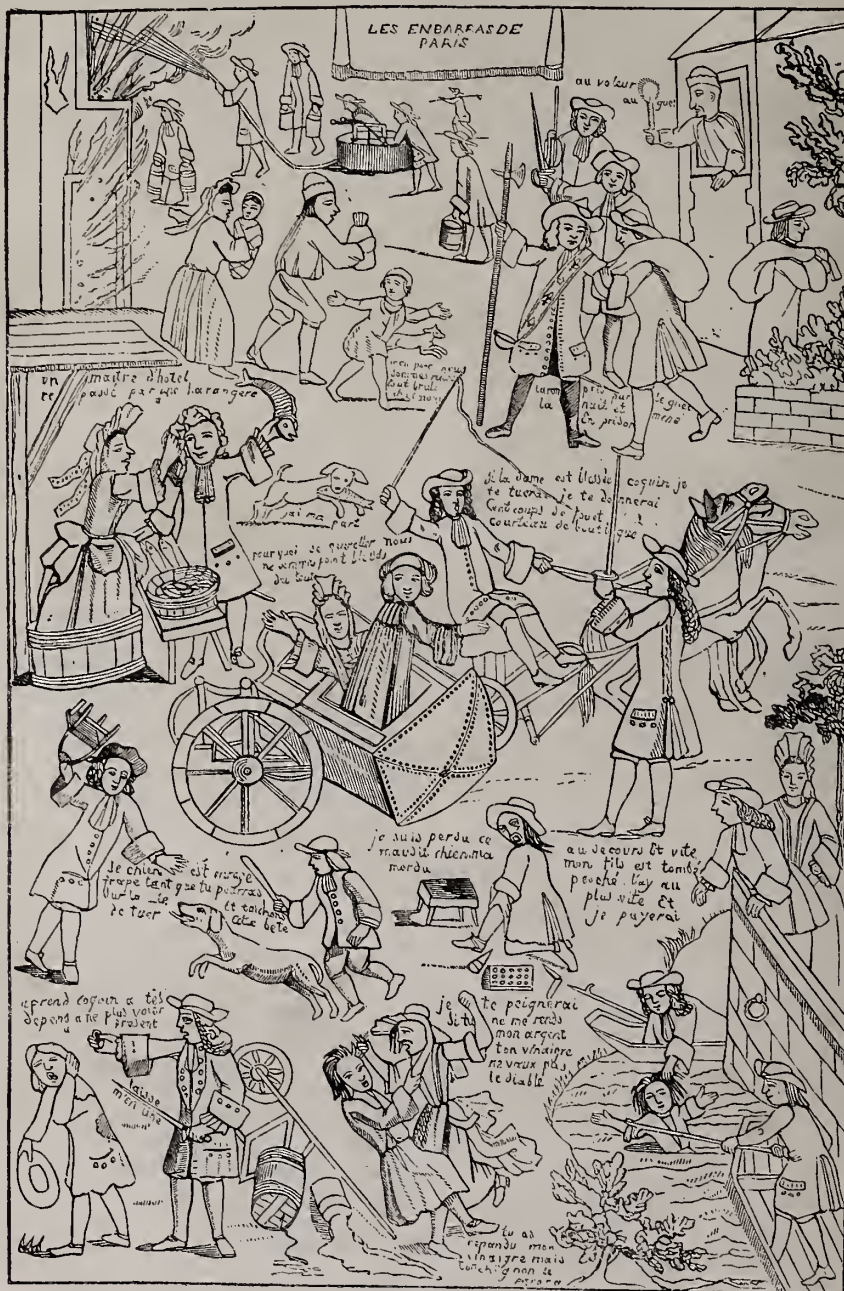 LES EMBARRAS DE
PARIS
au voleur
au guet
mon pere nous
sommes ruinés
tout brule
chez nous
laron pris par le guet
la nuit et mené
En prison
un maitre d'hotel
re passé par une harangere
j'ai ma
part
si la dame est blessée coquin je
te tuerai je te donnerai
cent coups de fouet
courteau de boutique
pourquoi se quereller nous
ne sommes point blessés
du tout
je suis perdu ce
maudit chien ma
mordu
le chien est enragé
frape tant que tu pourras
sur la
et taichons
de tuer cete bete
au secours et vite
mon fils est tombé
peché l'ay au
plus vite et
je payerai
aprend coquin a tes
depens a ne plus voler
present
laisse
m'en une
je te peignerai
si tu ne me rends
mon argent
ton vinaigre
ne vaux pas
le diable
tu as
repandu mon
vinaigre mais
ton chignon le
payera